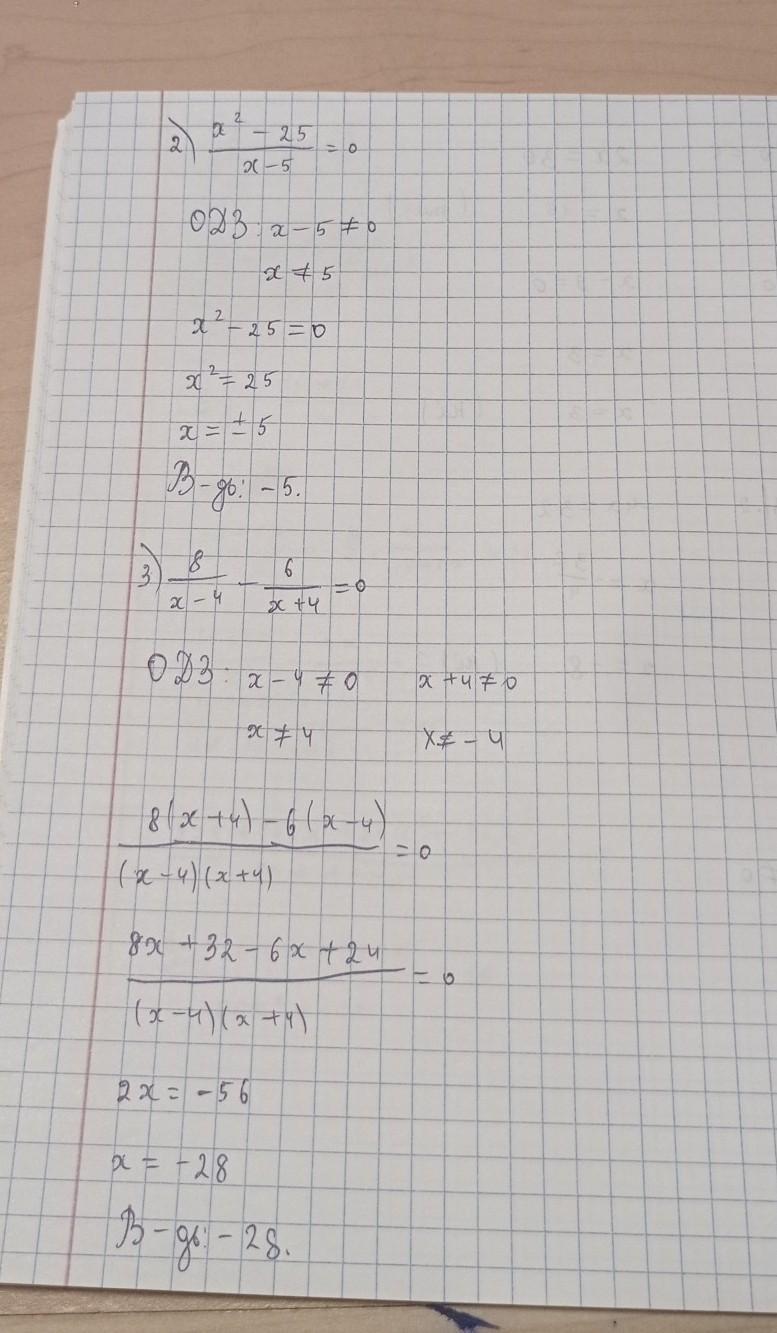 2) (x² - 25)/(x - 5) = 0
ОДЗ: x - 5 ≠ 0
x ≠ 5
x² - 25 = 0
x² = 25
x = ± 5
В-дь: -5.
3) 8/(x - 4) - 6/(x + 4) = 0
ОДЗ: x - 4 ≠ 0 x + 4 ≠ 0
x ≠ 4 x ≠ - 4
(8(x + 4) - 6(x - 4))/((x - 4)(x + 4)) = 0
(8x + 32 - 6x + 24)/((x - 4)(x + 4)) = 0
2x = -56
x = -28
В-дь: -28.